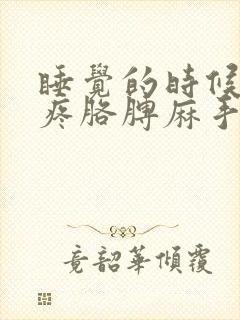 睡覺的時候
疼胳脾麻手
竟韶華傾覆